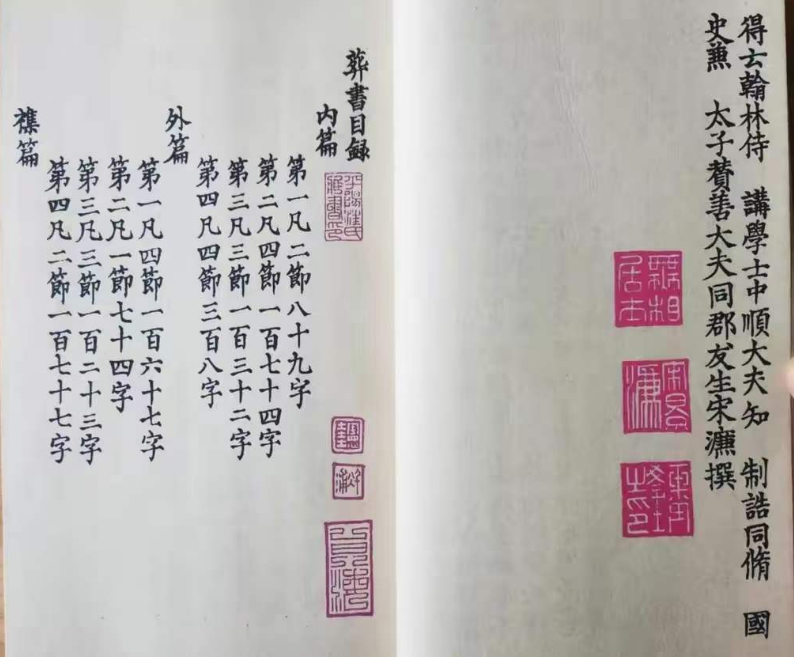 得士翰林侍　講學士中順大夫知　制誥同脩　國
史兼　太子贊善大夫同郡友生宋濂撰
無相居士
宋景濂
葬書目錄
內篇
第一凡二節八十九字
第二凡四節一百七十四字
第三凡三節一百三十二字
第四凡四節三百八字
外篇
第一凡四節一百六十七字
第二凡一節七十四字
第三凡三節一百二十三字
第四凡二節一百七十七字
襍篇